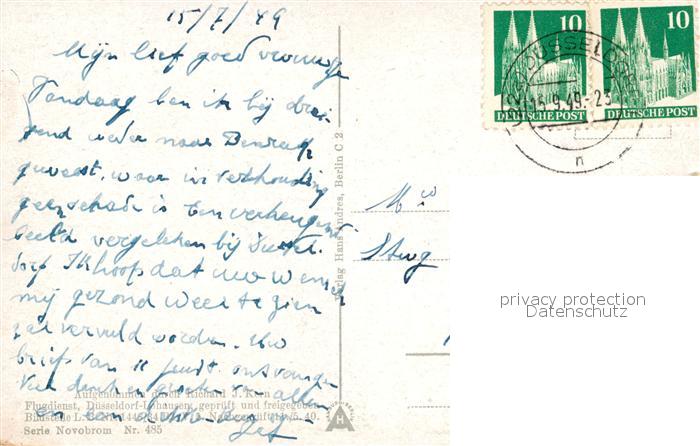 15/7/49
Mijn lief goed vrouwtje
Vandaag ben ik bij
weder naar Benrath
geweest, waar in verhouding
geen schade is Een verheugend
beeld vergeleken bij Düssel-
dorf Ik hoop dat uw wensch
mij gezond weer te zien
zal vervuld worden. Uw
brief van 11 ontvangen
Veel dank en groeten van allen
en een
10
10
DÜSSELDORF
15.9.49.-23
n
DEUTSCHE POST
DEUTSCHE POST
Verlag Hans Andres, Berlin C 2
Aufgenommen durch Richard J. Kern
Flugdienst, Düsseldorf-Lohausen, geprüft und freigegeben
Serie Novobrom Nr. 485
privacy protection
Datenschutz